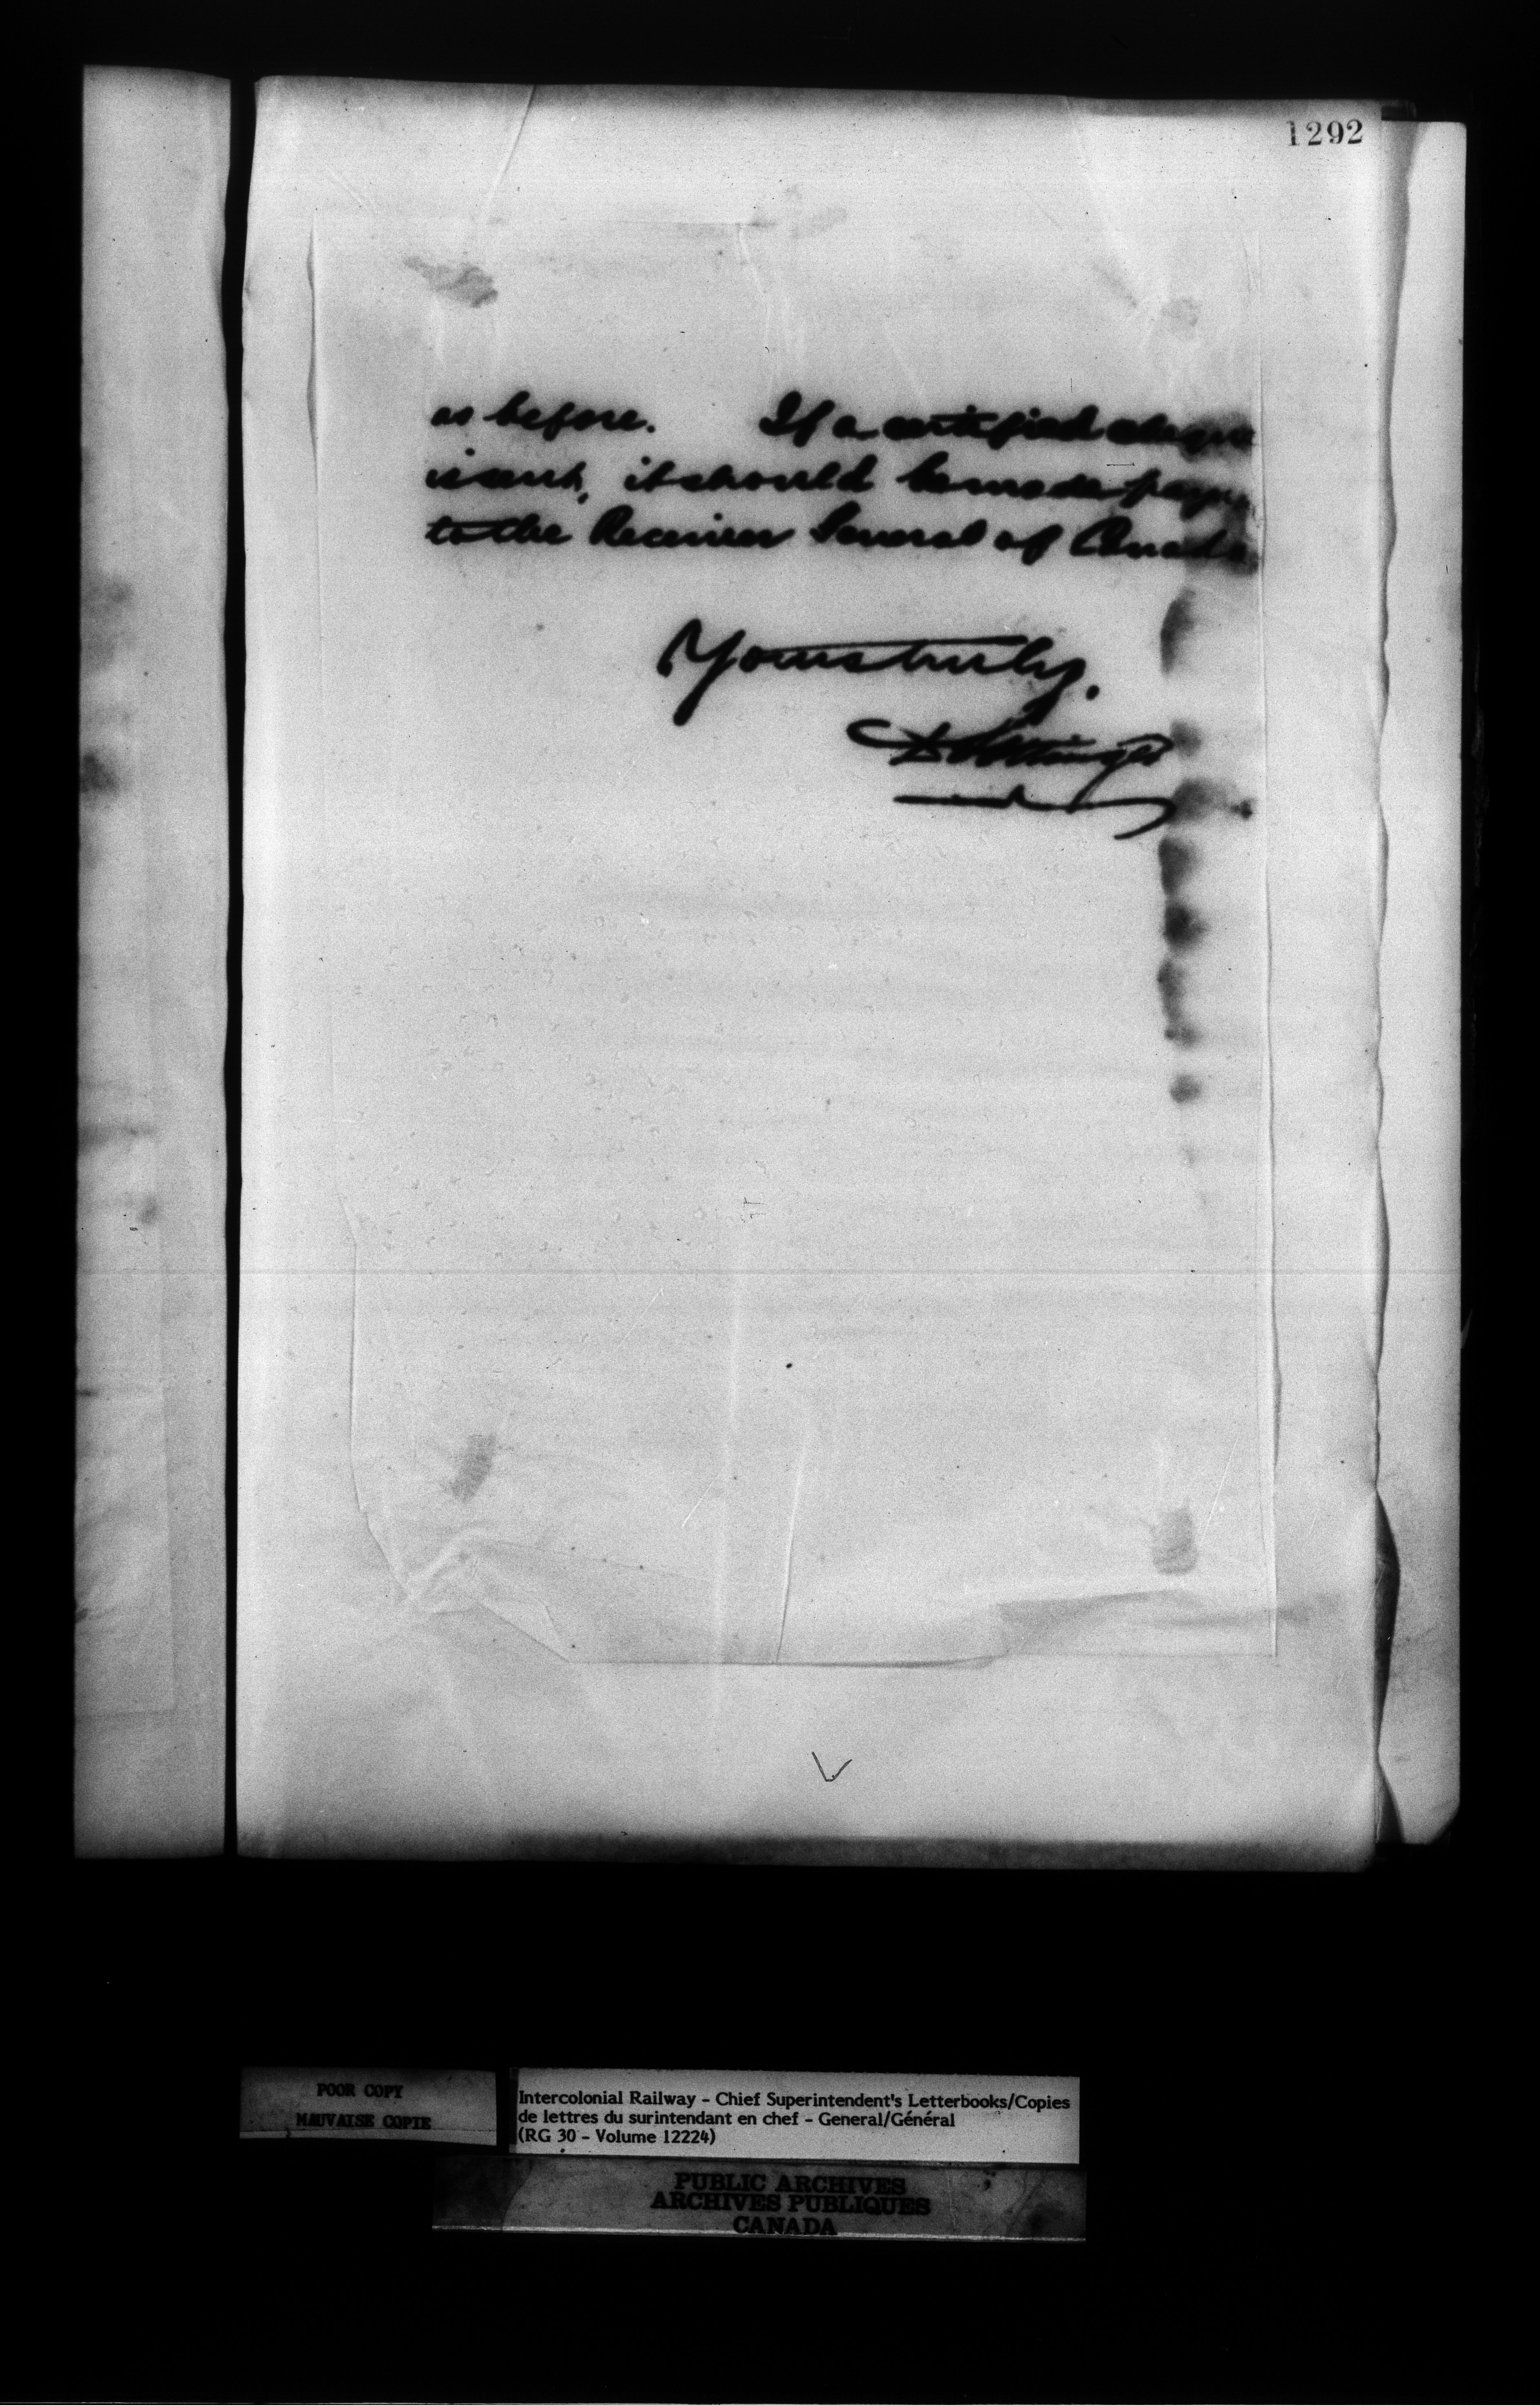 1292
as before. If a certified cheque
is sent, it should be made payable
to the Receiver General of Canada
Yours truly,
D Pottinger
POOR COPY
MAUVAISE COPIE
Intercolonial Railway - Chief Superintendent's Letterbooks/Copies
de lettres du surintendant en chef - General/Général
(RG 30 - Volume 12224)
PUBLIC ARCHIVES
ARCHIVES PUBLIQUES
CANADA